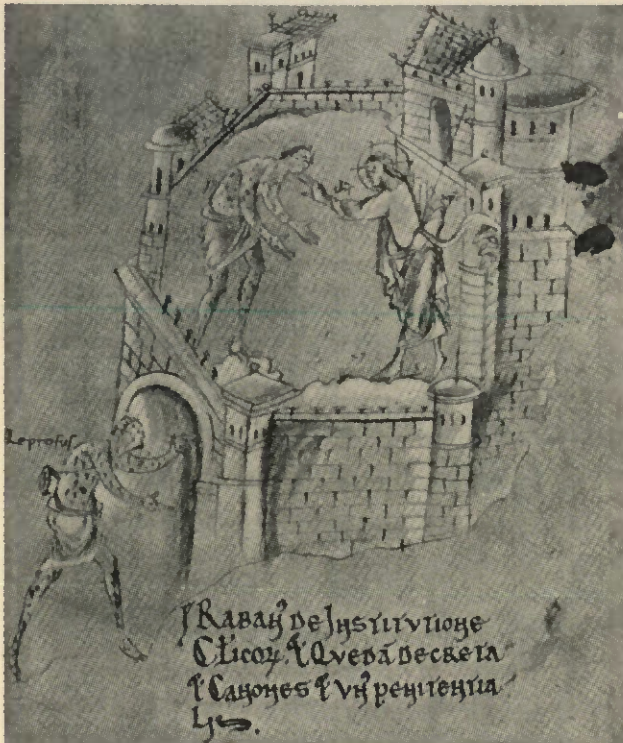 Leprosus
Raban' de Institutione
Clicoꝝ. ⁊ Quedā Decreta
⁊ Canones ⁊ un' penitentia
lis.